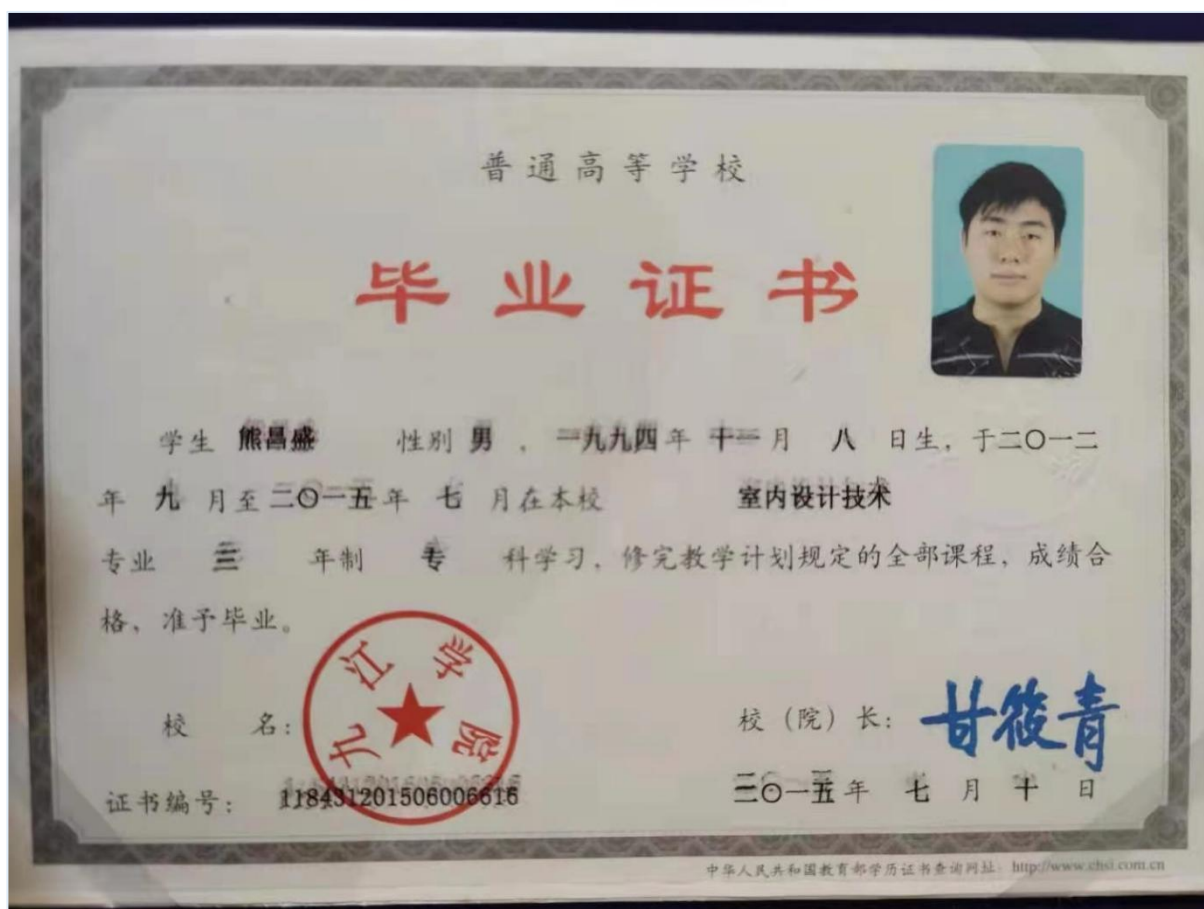 普通高等学校
毕业证书
学生 熊昌盛 性别 男 ，一九九四 年 十一 月 八 日生，于二〇一二
年 九 月至 二〇一五 年 七 月在本校 室内设计技术
专业 三 年制 专 科学习，修完教学计划规定的全部课程，成绩合
格，准予毕业。
九江学院
校 名：
校（院）长： 甘筱青
证书编号： 118431201506006616
二〇一五 年 七 月 十 日
中华人民共和国教育部学历证书查询网址：http://www.chsi.com.cn